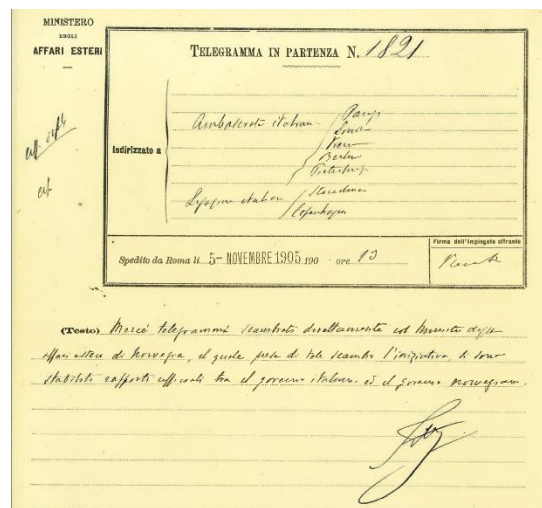 MINISTERO
DEGLI
AFFARI ESTERI
TELEGRAMMA IN PARTENZA N. 1821
Indirizzato a
Ambasciate italiane
Parigi
Londra
Vienna
Berlino
Pietroburgo
Legazione italiana
Copenhagen
Firma dell'Impiegato cifrante
Spedito da Roma li 5 - NOVEMBRE 1905 190 ore 13
(Testo) Mercé telegrammi scambiati direttamente col Ministro degli
affari esteri di Norvegia, il quale prese di tale scambio l'iniziativa, si sono
stabiliti rapporti ufficiali tra il governo italiano ed il governo norvegiano.